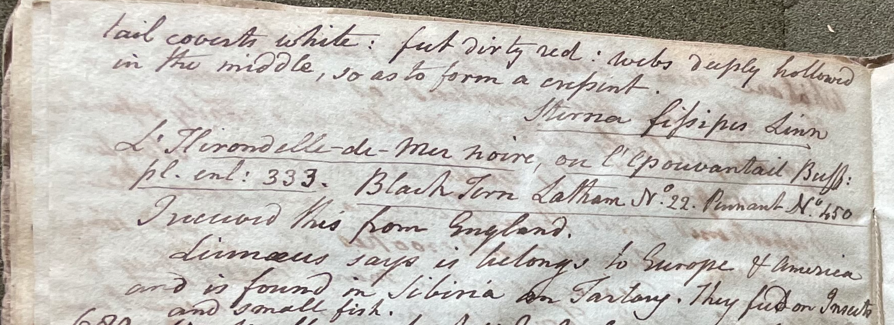 tail coverts white: feet dirty red: webs deeply hollowed
in the middle, so as to form a cressent.
Sterna fissipes Linn
L'Hirondelle-de-Mer noire, ou l'Epouvantail Buff:
pl. enl: 333. Black Tern Latham No. 22. Pennant No. 450
I received this from England.
Linnæus says is belongs to Europe & America
and is found in Sibiria on Tartary. They feed on Insects
and small fish.